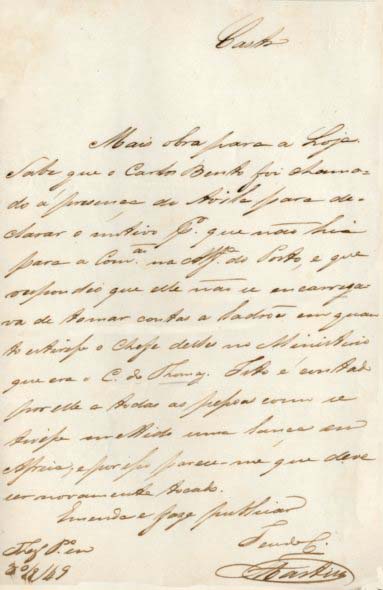 Casto
Mais obra para a Loja.
Sabe que o Carlos Bento foi chama-
do á presença do Avila para de-
clarar o motivo pr. que não hia
para a Com.ão na Alf.a do Porto, e que
respondêo que elle não se encarrega-
va de tomar contas a Ladrões em quan
to estivesse o Chefe delles no Ministerio
que era o C. de Thomar. Isto é contado
por elle a todas as pessoas como se
tivesse mettido uma lança em
Africa; e por isso parece-me que deve
ser novamente tocado.
Emende e faça publicar
Seu do C.
30/2/49
Martins